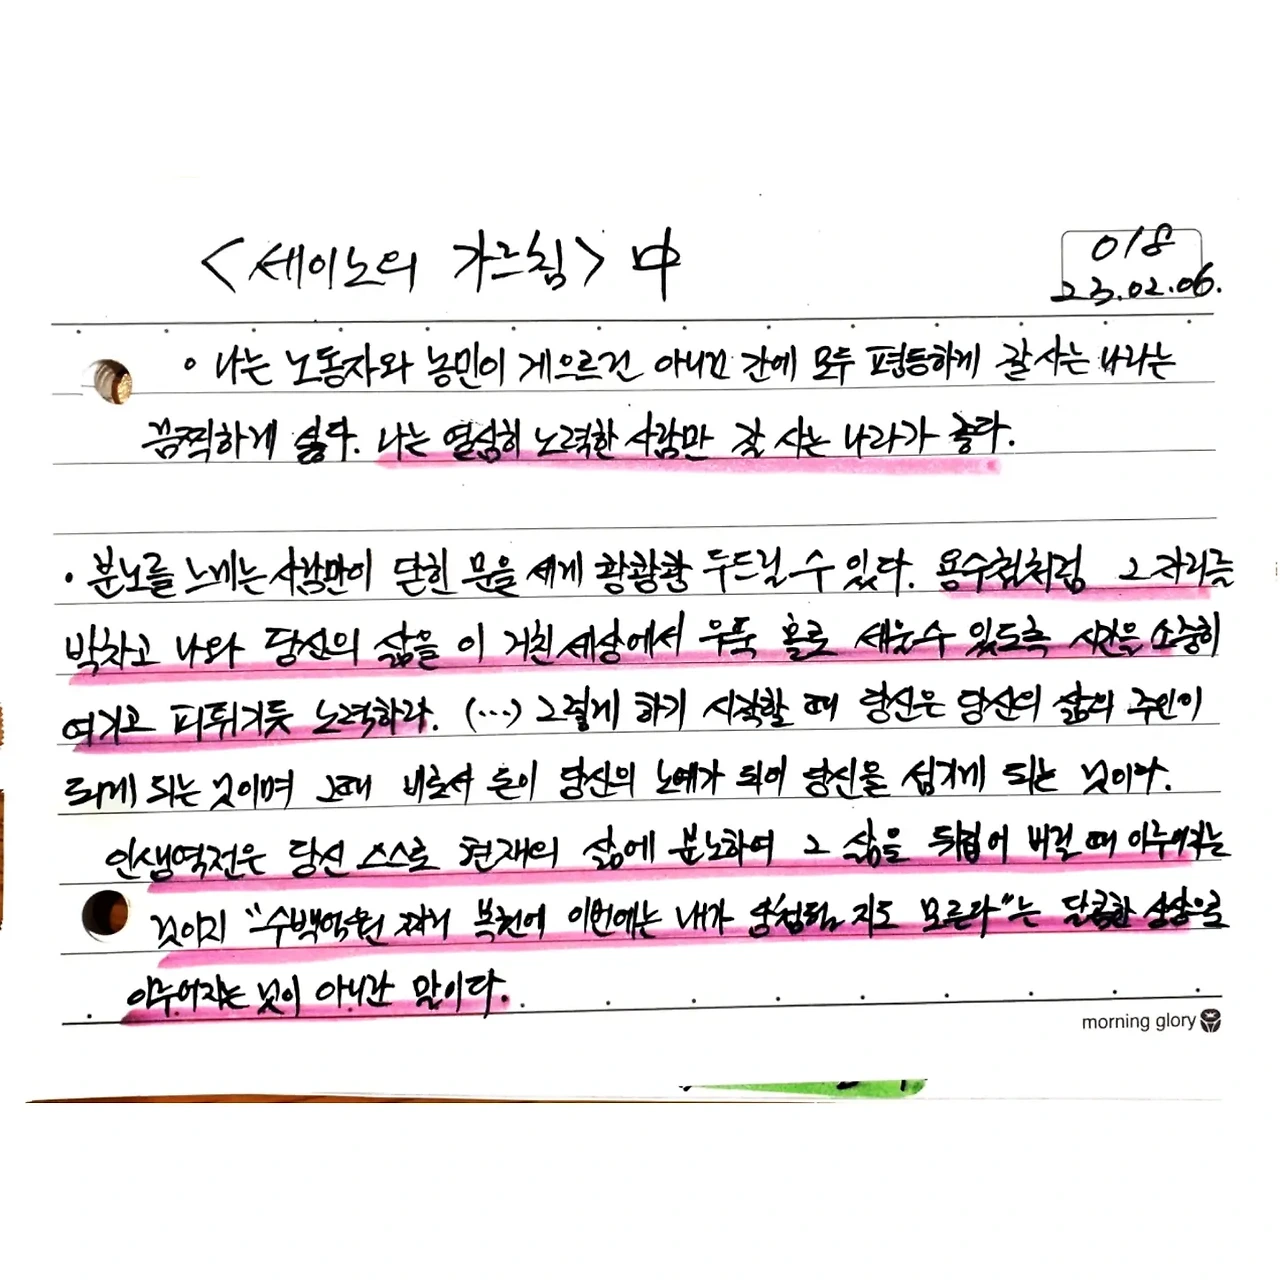 <세이노의 가르침> 中
018
23.02.06.
• 나는 노동자와 농민이 게으르건 아니건 간에 모두 평등하게 잘 사는 나라는
끔찍하게 싫다. 나는 열심히 노력한 사람만 잘 사는 나라가 좋다.
• 분노를 느끼는 사람만이 닫힌 문을 세게 쾅쾅쾅 두드릴 수 있다. 용수철처럼 그 자리를
박차고 나와 당신의 삶을 이 거친 세상에서 우뚝 홀로 세울 수 있도록 시간을 소중히
여기고 피튀기듯 노력하라. (…) 그렇게 하기 시작할 때 당신은 당신의 삶의 주인이
되게 되는 것이며 그때 비로서 돈이 당신의 노예가 되어 당신을 섬기게 되는 것이다.
인생역전은 당신 스스로 현재의 삶에 분노하여 그 삶을 뒤집어 버릴 때 이루어지는
것이지 "수백억원 짜리 복권에 이번에는 내가 당첨될 지도 모른다"는 달콤한 상상으로
이루어지는 것이 아니란 말이다.
morning glory